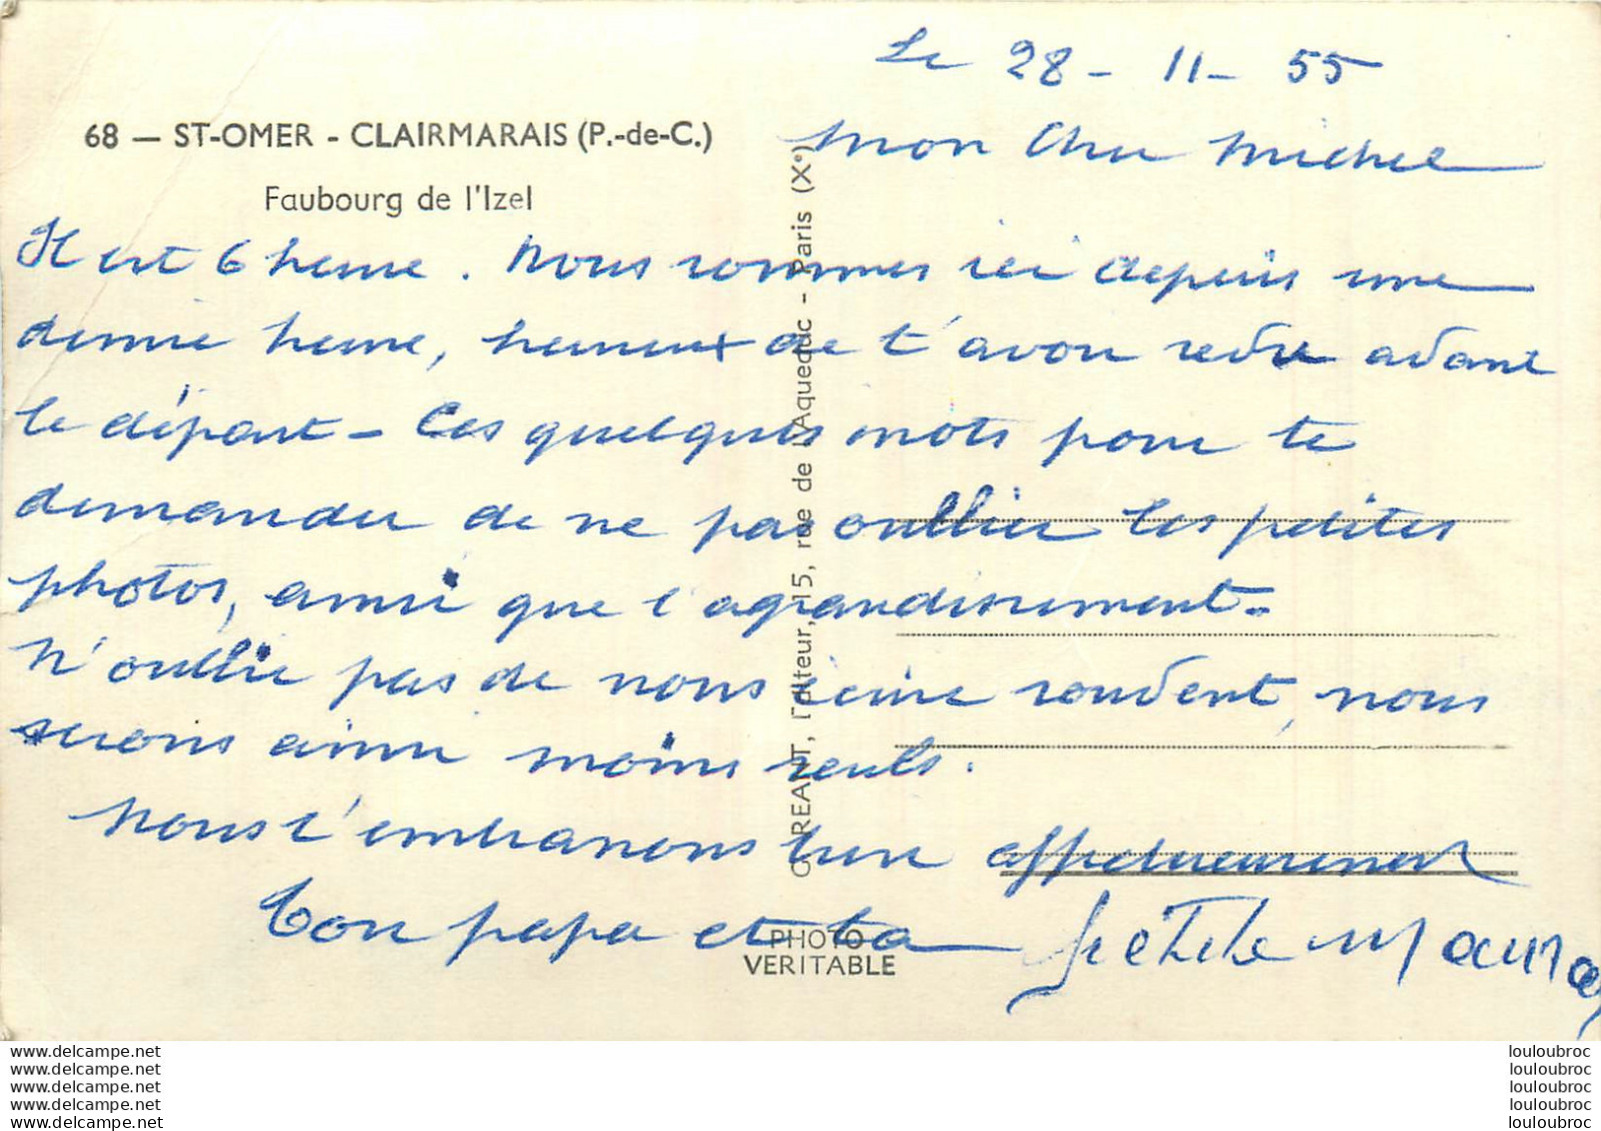 Le 28 - 11 - 55
68 — ST-OMER - CLAIRMARAIS (P.-de-C.)
Mon Cher Michel
Faubourg de l'Izel
Il est 6 heure. Nous sommes ici depuis une
demie heure, heureux de t'avoir redu avant
le départ - Ces quelques mots pour te
demander de ne pas oublier les petites
photos, ainsi que l'agrandissement -
N'oublie pas de nous écrire souvent, nous
serons ainsi moins seuls.
Nous t'embrassons bien affectueusement
Ton papa et ta petite Maman
PHOTO
VERITABLE
, Editeur, 15, rue de l'Aqueduc - Paris (Xe)
www.delcampe.net
www.delcampe.net
www.delcampe.net
www.delcampe.net
www.delcampe.net
louloubroc
louloubroc
louloubroc
louloubroc
louloubroc